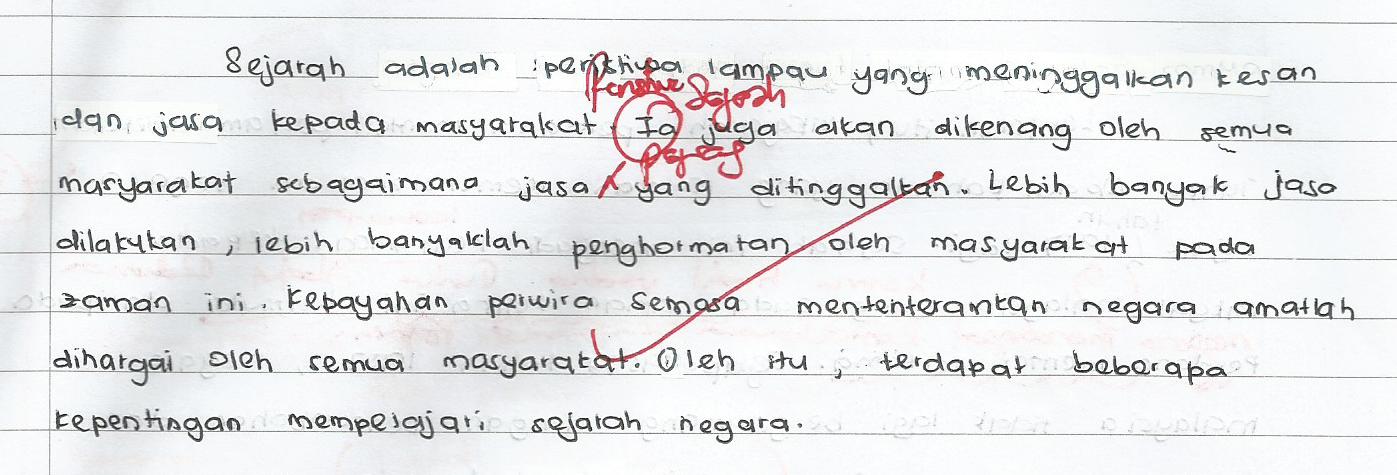 Sejarah adalah peristiwa lampau yang meninggalkan kesan
dan jasa kepada masyarakat. Ia juga akan dikenang oleh semua
masyarakat sebagaimana jasa yang ditinggalkan. Lebih banyak jasa
dilakukan, lebih banyaklah penghormatan oleh masyarakat pada
zaman ini. Kepayahan perwira semasa mententerankan negara amatlah
dihargai oleh semua masyarakat. Oleh itu, terdapat beberapa
kepentingan mempelajari sejarah negara.